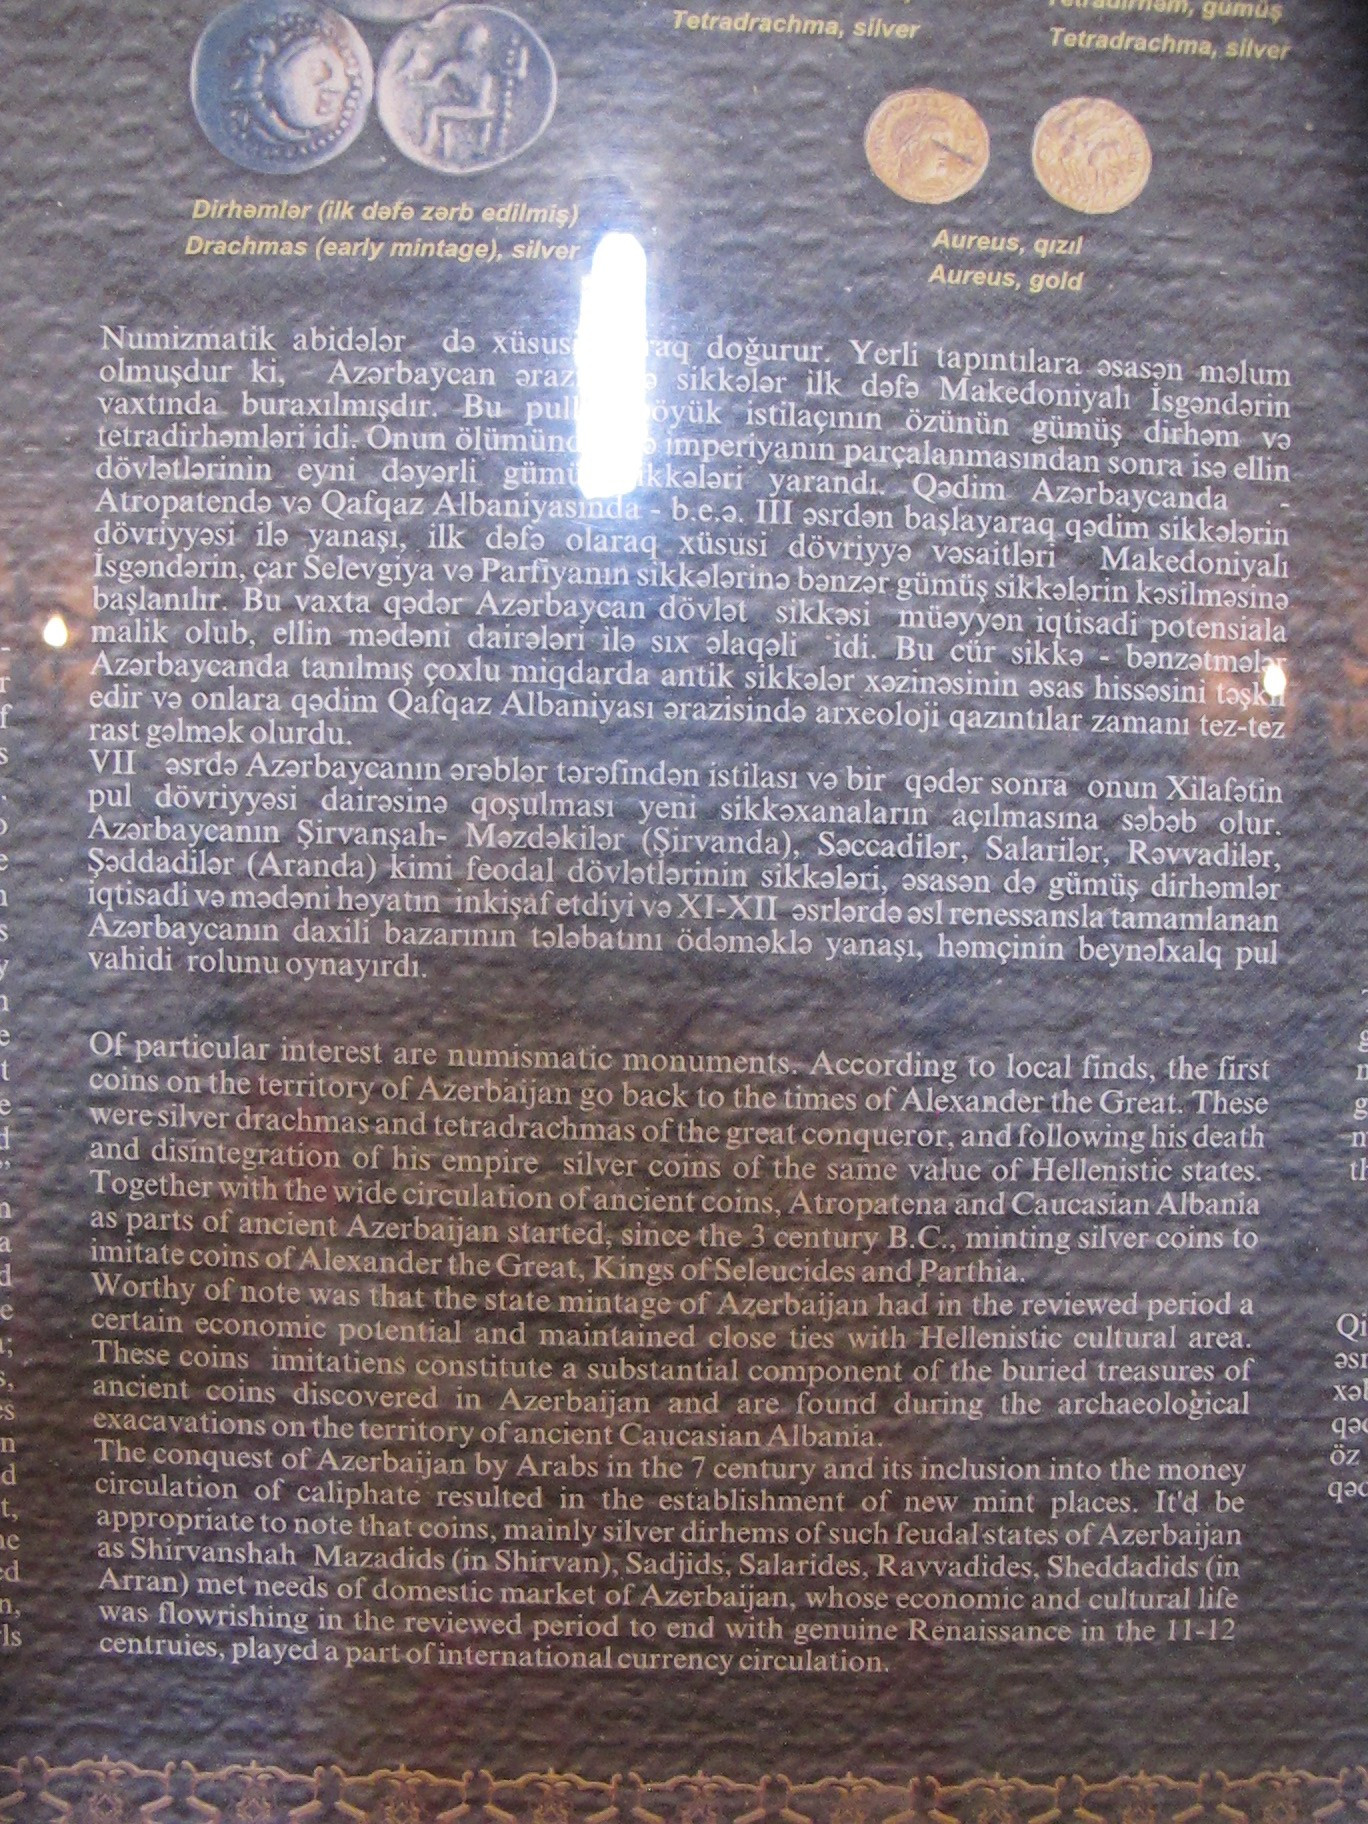 Tetradrachma, silver
gümüş
Tetradrachma, silver
Dirhəmlər (ilk dəfə zərb edilmiş)
Drachmas (early mintage), silver
Aureus, qızıl
Aureus, gold
Numizmatik abidələr də doğurur. Yerli tapıntılara əsasən məlum
olmuşdur ki, Azərbaycan sikkələr ilk dəfə Makedoniyalı İsgəndərin
vaxtında buraxılmışdır. Bu istilaçının özünün gümüş dirhəm və
tetradirhəmləri idi. Onun imperiyanın parçalanmasından sonra isə ellin
dövlətlərinin eyni dəyərli yarandı. Qədim Azərbaycanda -
Atropatendə və Qafqaz Albaniyasında - b.e.ə. III əsrdən başlayaraq qədim sikkələrin
dövriyyəsi ilə yanaşı, ilk dəfə olaraq xüsusi dövriyyə vəsaitləri Makedoniyalı
İsgəndərin, çar Selevgiya və Parfiyanın sikkələrinə bənzər gümüş sikkələrin kəsilməsinə
başlanılır. Bu vaxta qədər Azərbaycan dövlət sikkəsi müəyyən iqtisadi potensiala
malik olub, ellin mədəni dairələri ilə sıx əlaqəli idi. Bu cür sikkə - bənzətmələr
Azərbaycanda tanılmış çoxlu miqdarda antik sikkələr xəzinəsinin əsas hissəsini təşkil
edir və onlara qədim Qafqaz Albaniyası ərazisində arxeoloji qazıntılar zamanı tez-tez
rast gəlmək olurdu.
VII əsrdə Azərbaycanın ərəblər tərəfindən istilası və bir qədər sonra onun Xilafətin
pul dövriyyəsi dairəsinə qoşulması yeni sikkəxanaların açılmasına səbəb olur.
Azərbaycanın Şirvanşah- Məzdəkilər (Şirvanda), Səccadilər, Salarilər, Rəvvadilər,
Şəddadilər (Aranda) kimi feodal dövlətlərinin sikkələri, əsasən də gümüş dirhəmlər
iqtisadi və mədəni həyatın inkişaf etdiyi və XI-XII əsrlərdə əsl renessansla tamamlanan
Azərbaycanın daxili bazarının tələbatını ödəməklə yanaşı, həmçinin beynəlxalq pul
vahidi rolunu oynayırdı.
Of particular interest are numismatic monuments. According to local finds, the first
coins on the territory of Azerbaijan go back to the times of Alexander the Great. These
were silver drachmas and tetradrachmas of the great conqueror, and following his death
and disintegration of his empire silver coins of the same value of Hellenistic states.
Together with the wide circulation of ancient coins, Atropatena and Caucasian Albania
as parts of ancient Azerbaijan started, since the 3 century B.C., minting silver coins to
imitate coins of Alexander the Great, Kings of Seleucides and Parthia.
Worthy of note was that the state mintage of Azerbaijan had in the reviewed period a
certain economic potential and maintained close ties with Hellenistic cultural area.
These coins imitatiens constitute a substantial component of the buried treasures of
ancient coins discovered in Azerbaijan and are found during the archaeological
exacavations on the territory of ancient Caucasian Albania.
The conquest of Azerbaijan by Arabs in the 7 century and its inclusion into the money
circulation of caliphate resulted in the establishment of new mint places. It'd be
appropriate to note that coins, mainly silver dirhems of such feudal states of Azerbaijan
as Shirvanshah Mazadids (in Shirvan), Sadjids, Salarides, Ravvadides, Sheddadids (in
Arran) met needs of domestic market of Azerbaijan, whose economic and cultural life
was flowrishing in the reviewed period to end with genuine Renaissance in the 11-12
centruies, played a part of international currency circulation.